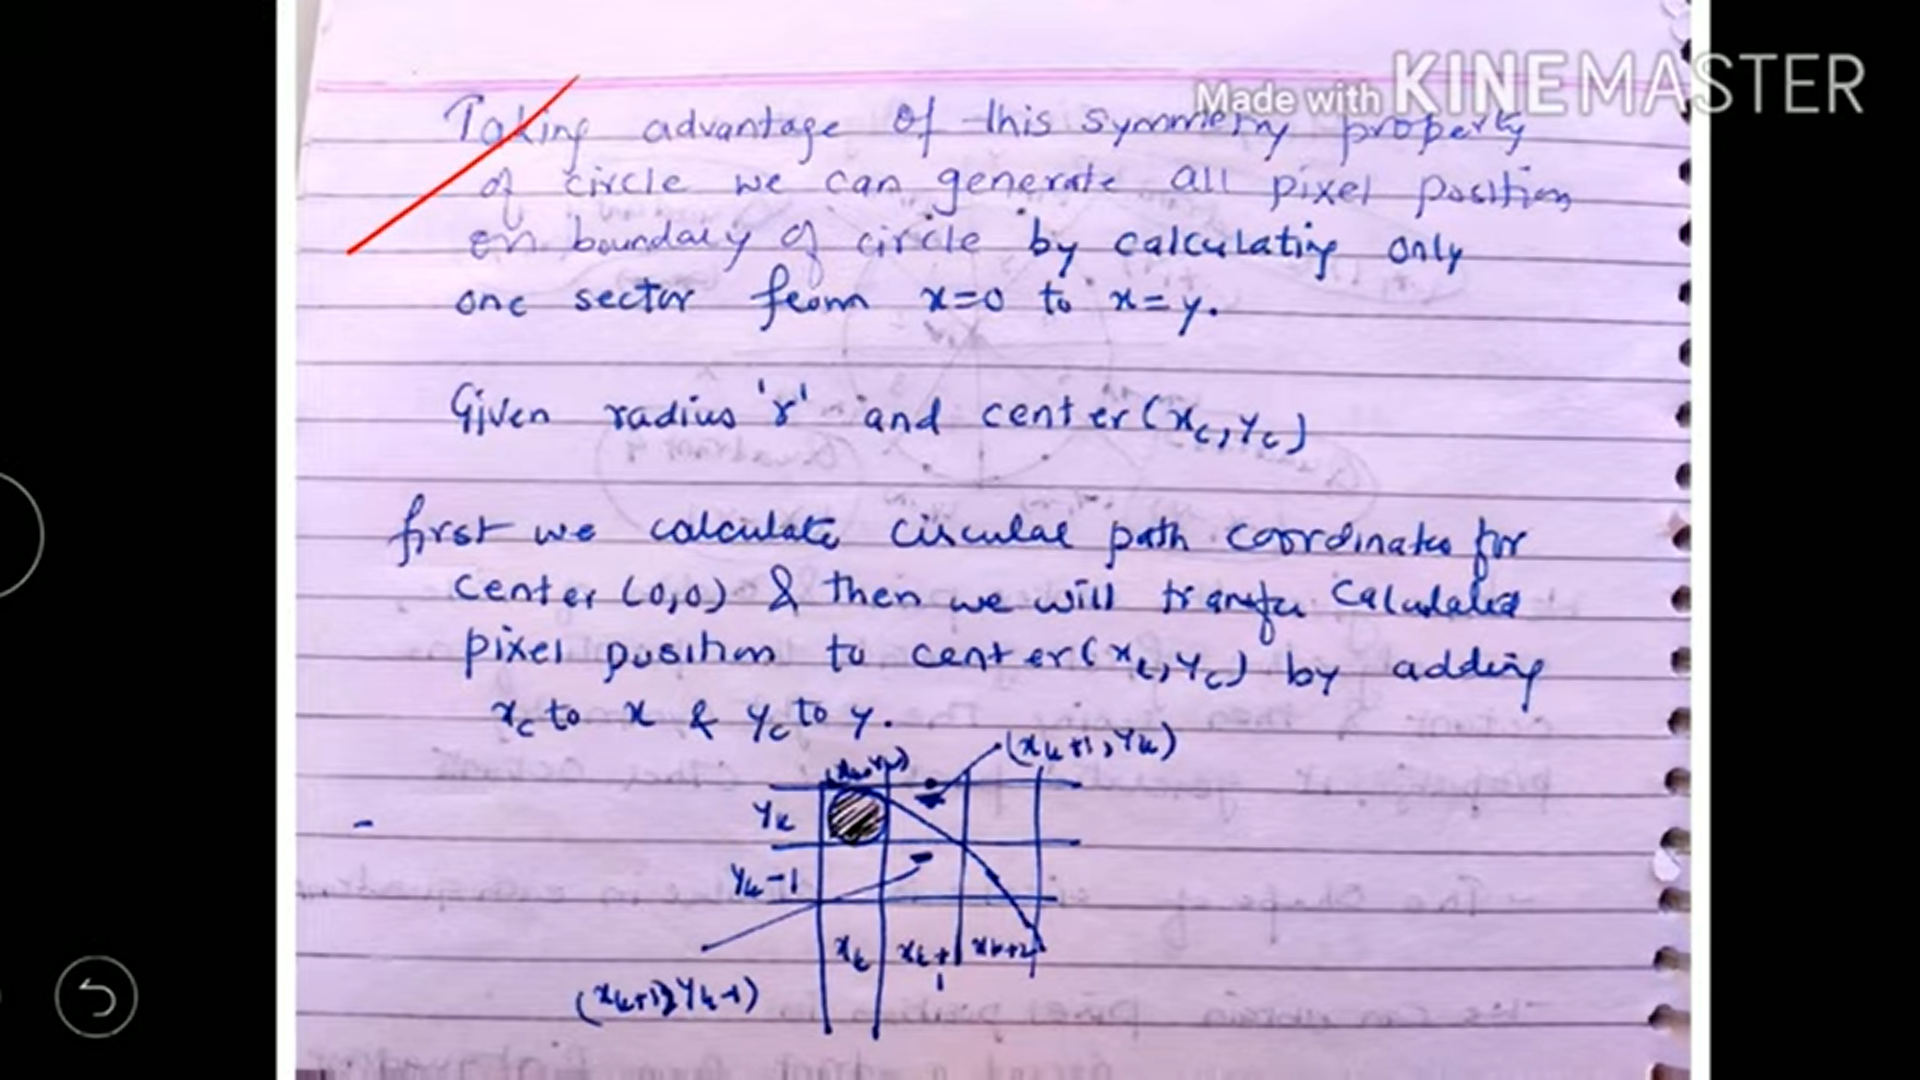 Made with KINEMASTER
Taking advantage of this symmetry property
of circle we can generate all pixel position
on boundary of circle by calculating only
one sector from x=0 to x=y.
Given radius 'r' and center (xc, yc)
first we calculate circular path coordinates for
center (0,0) & then we will transfer calculated
pixel position to center (xc, yc) by adding
xc to x & yc to y.
(xk, yk)
(xk+1, yk)
yk
yk-1
xk
xk+1
xk+2
(xk+1, yk-1)